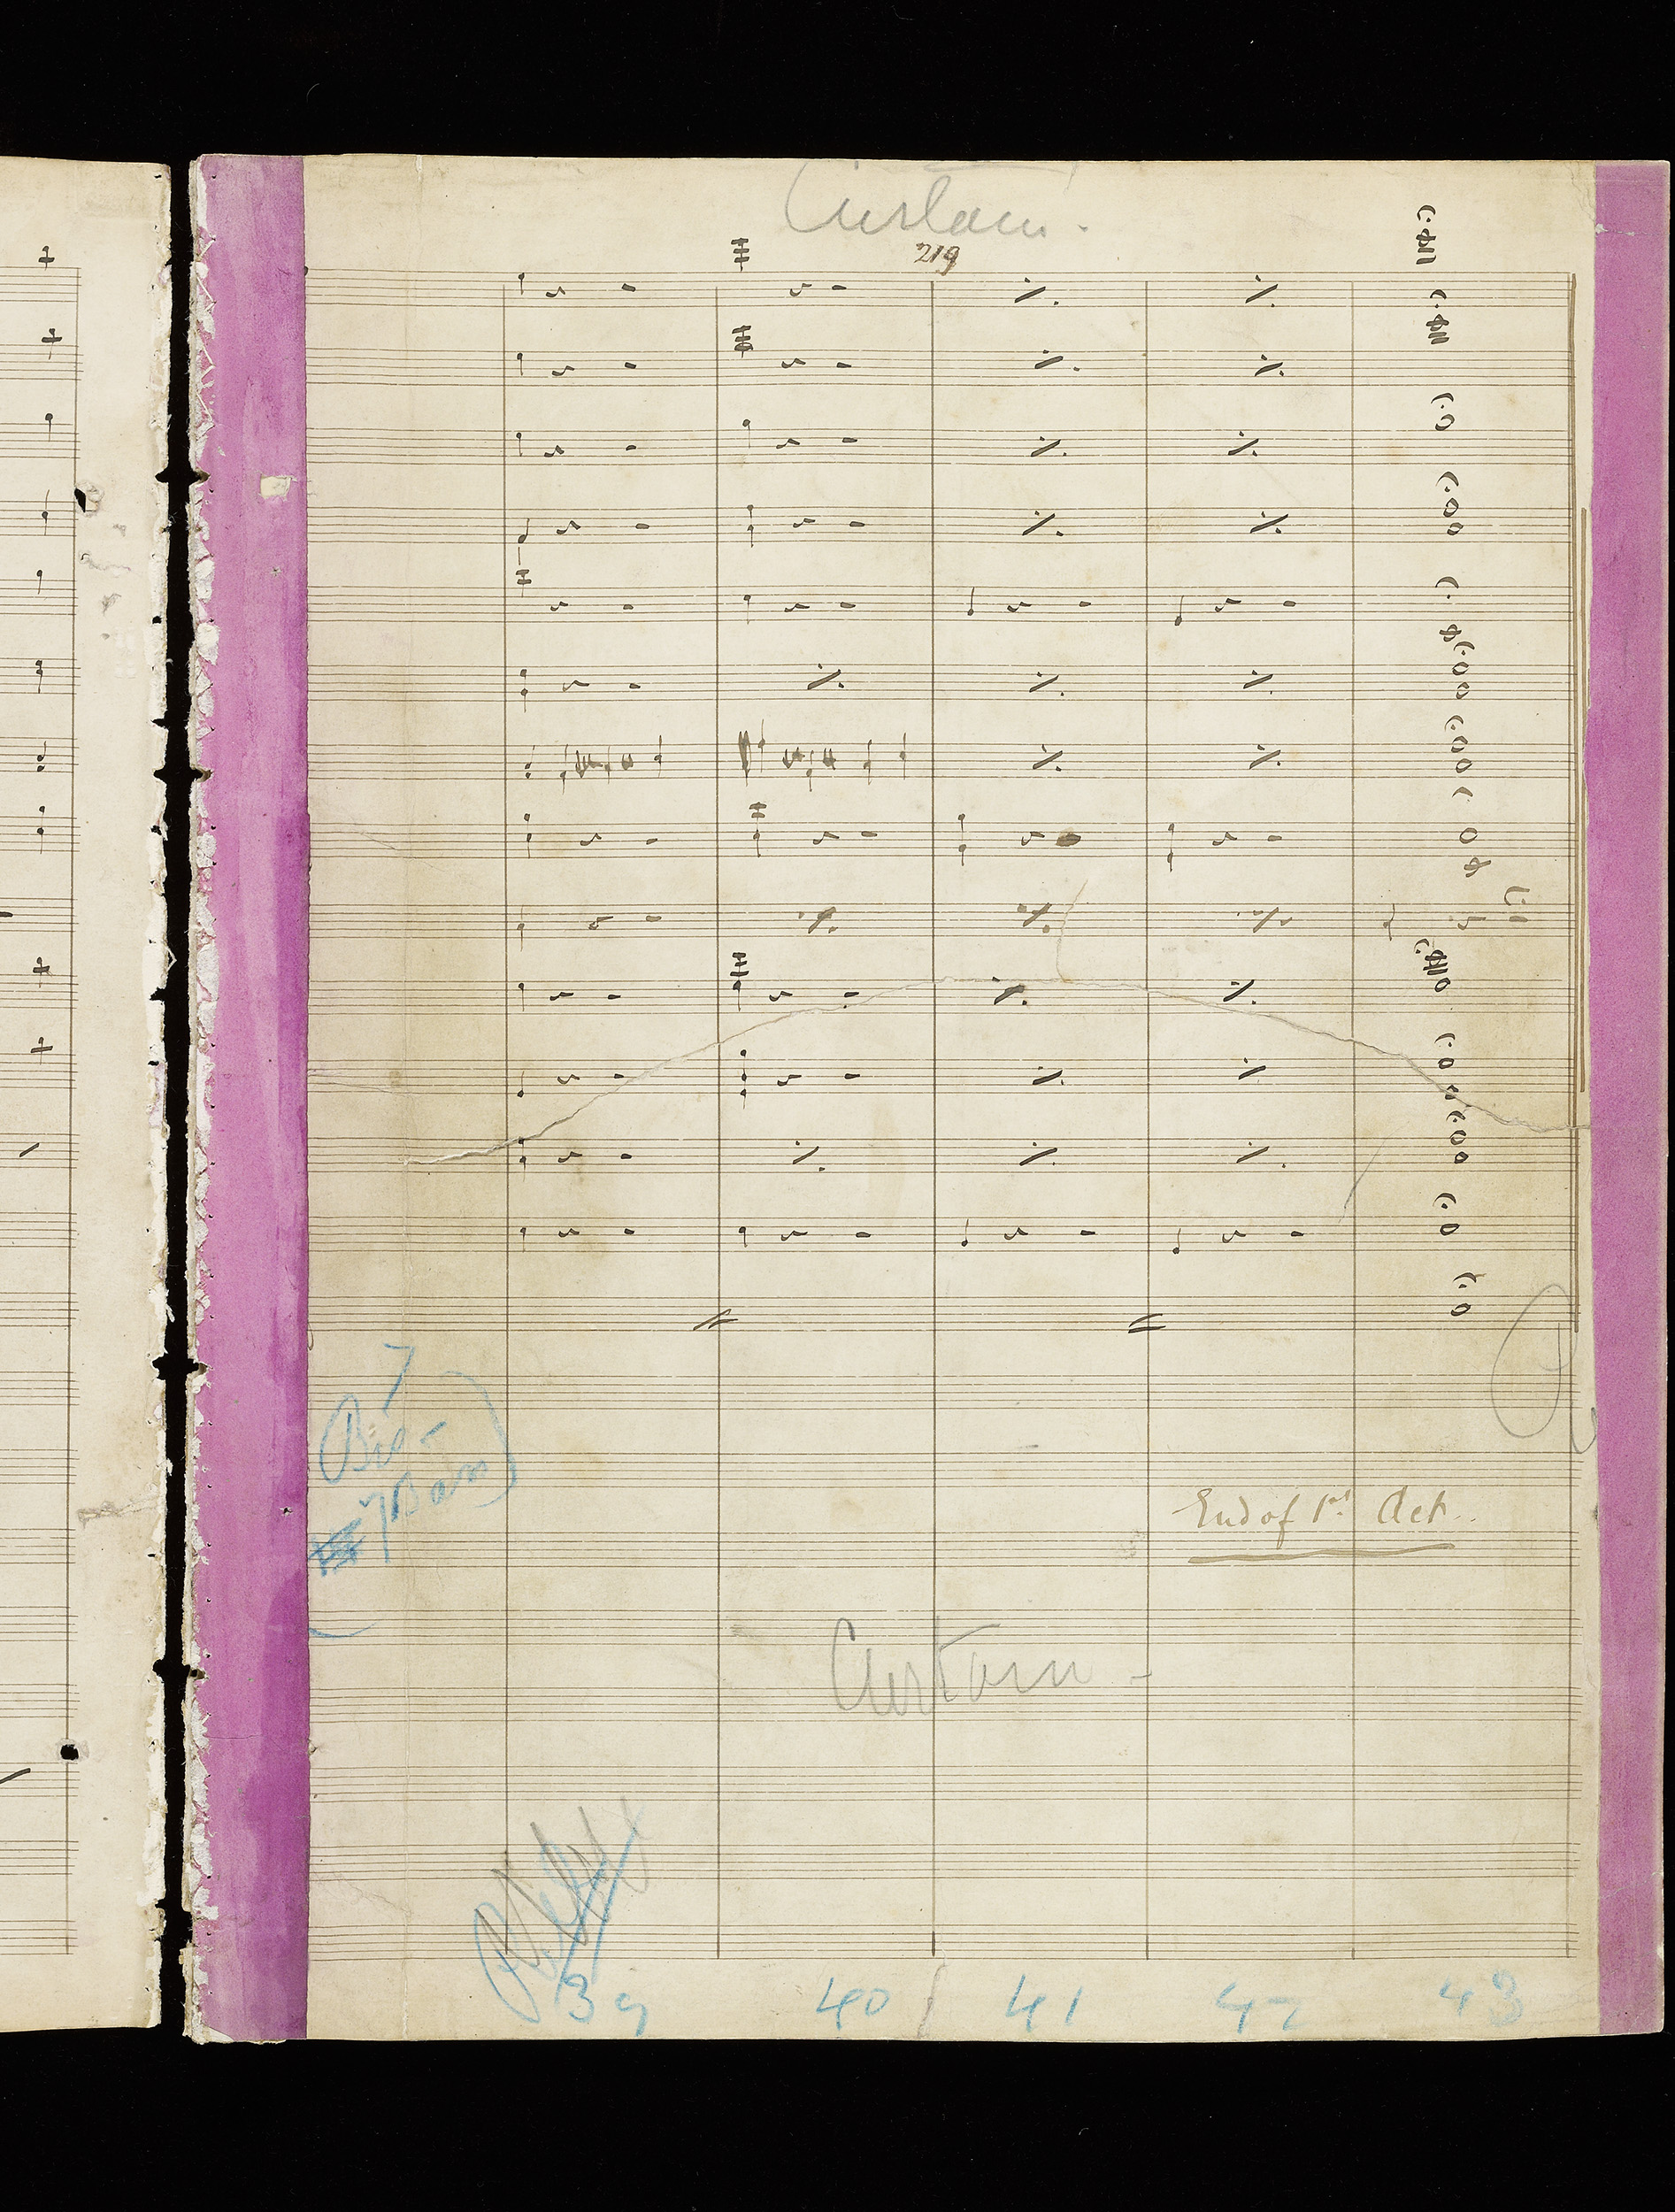 Curtain.
219
End of 1st Act.
Curtain -
39 40 41 42 43